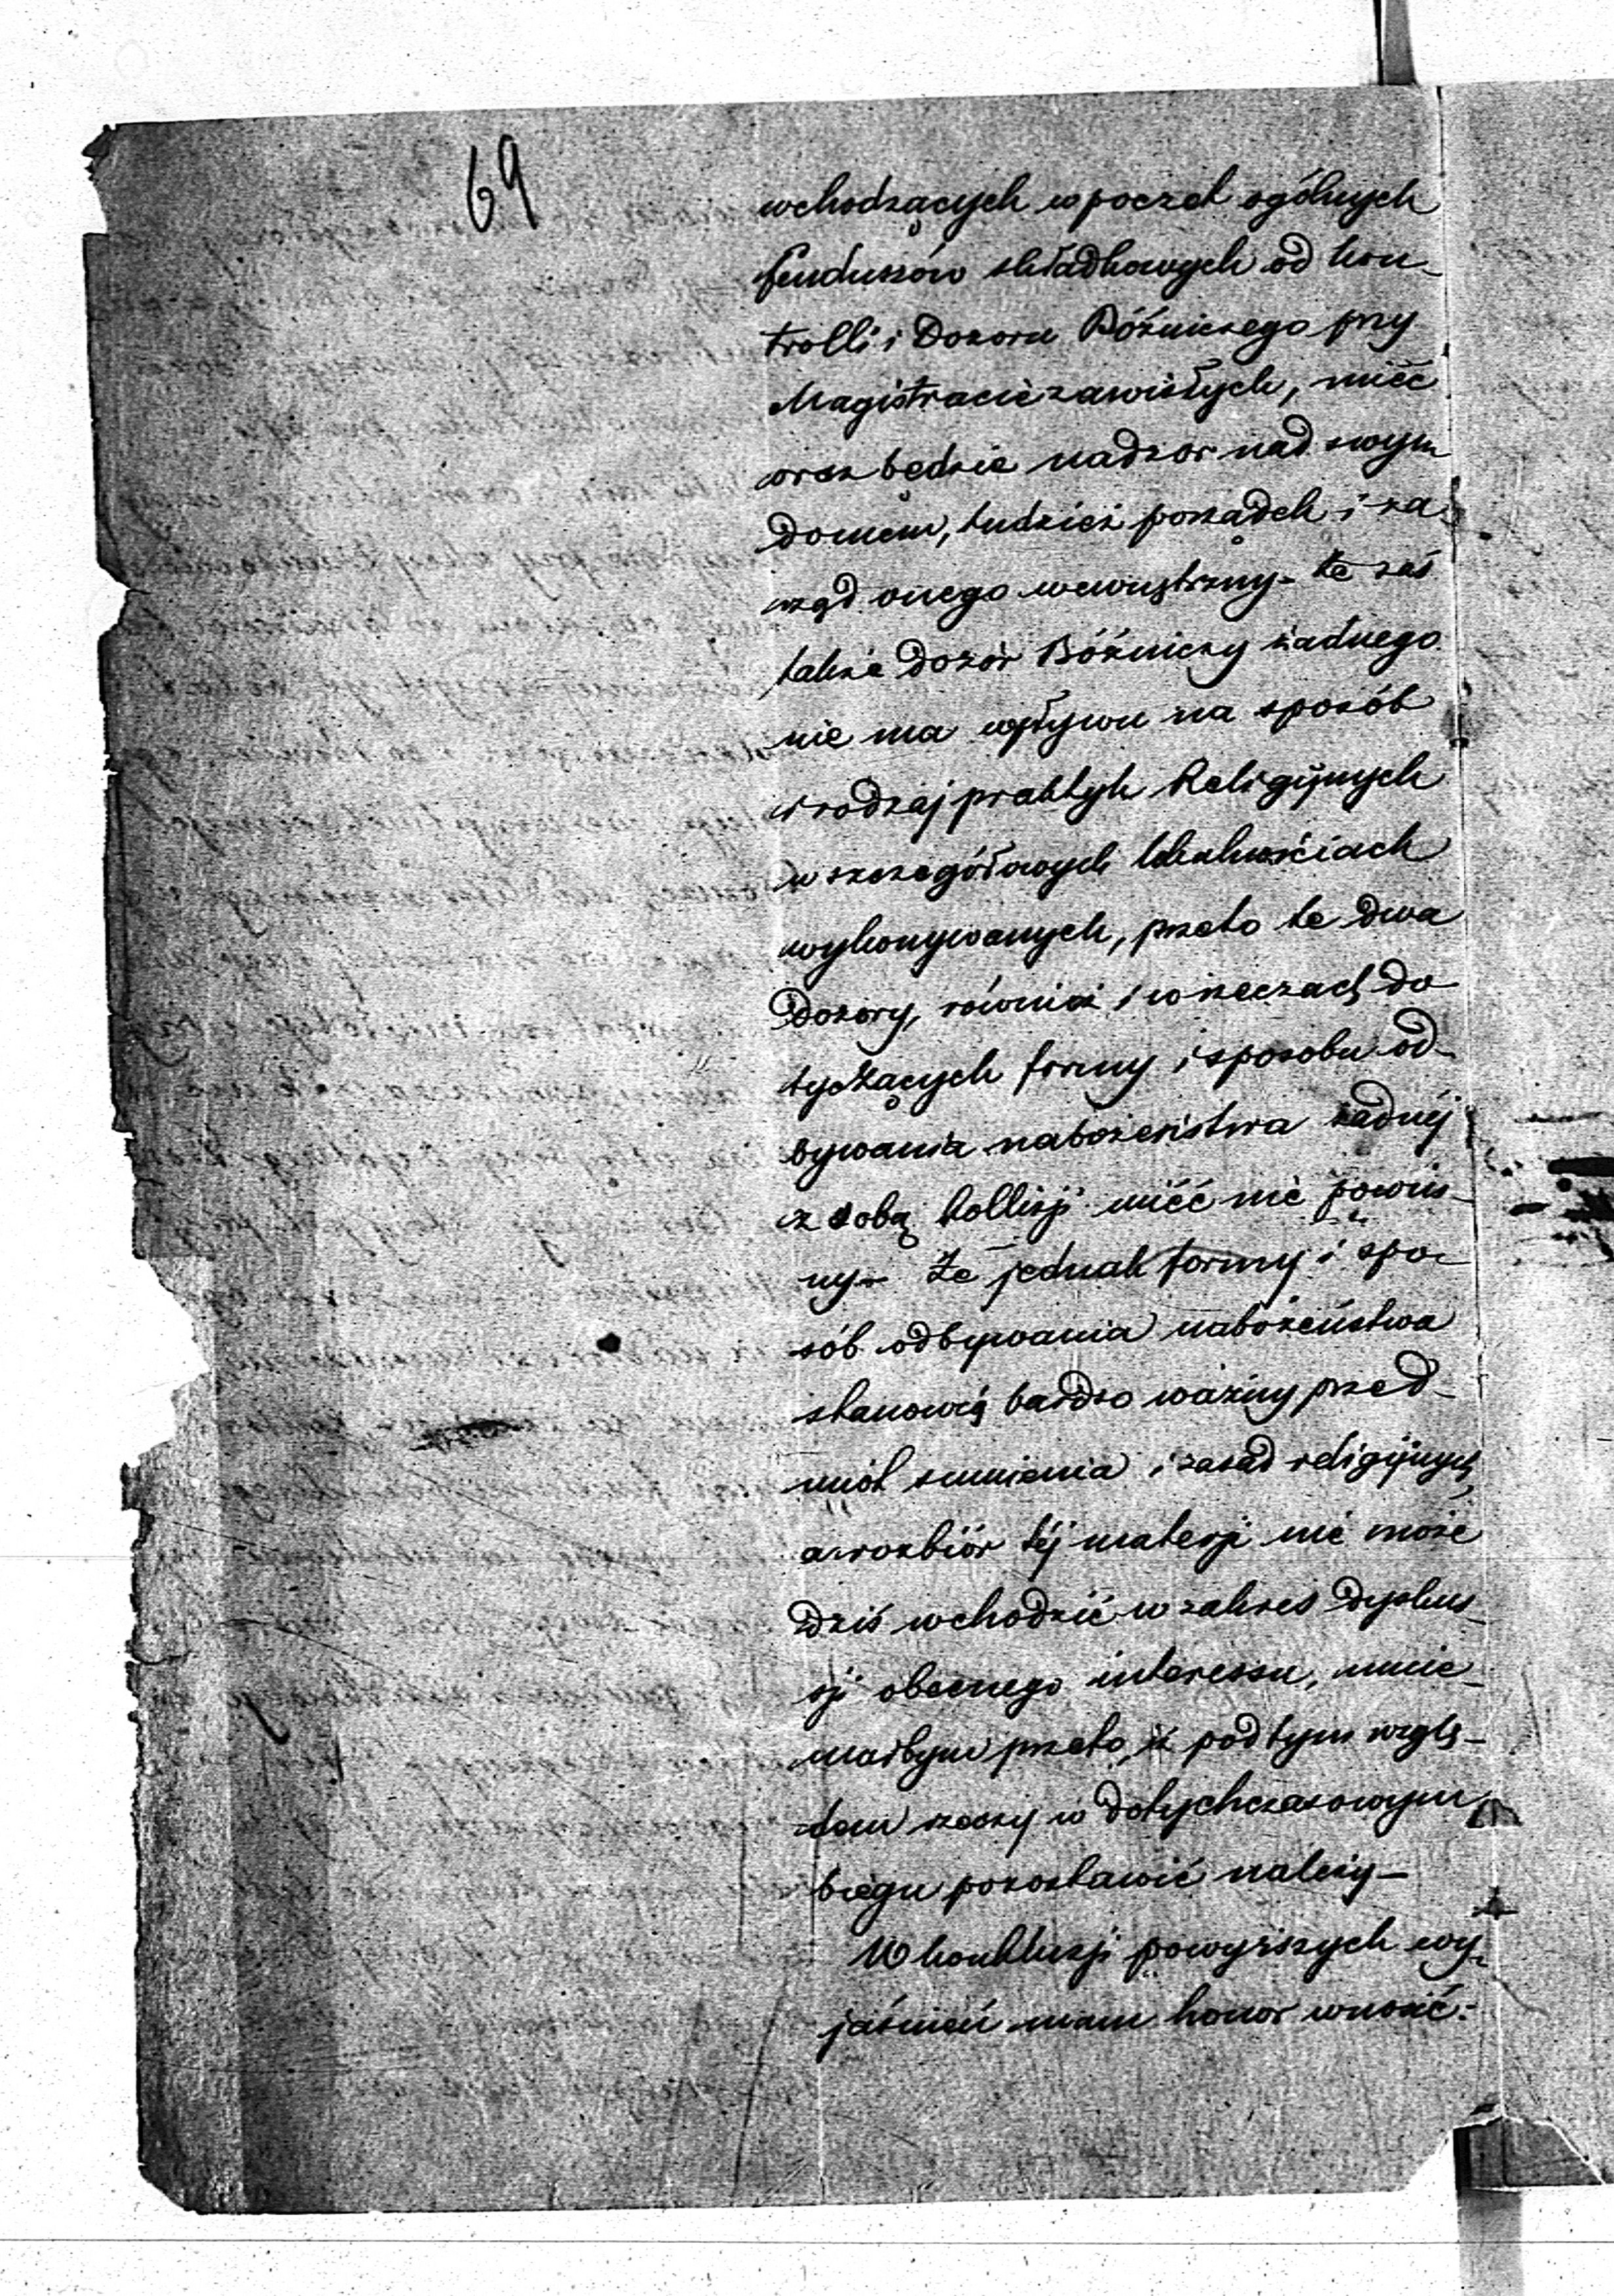 69
wchodzących w poczet ogólnych
funduszów składkowych od kon-
trolli i Dozoru Bóżniczego przy
Magistracie zawisłych, mieć
oraz będzie nadzor nad swym
domem, tudzież porządek i za-
rząd onego wewnętrzny – że zaś
także dozór Bóżniczy żadnego
nie ma wpływu na sposób
i rodzaj praktyk Religijnych
w szczegółowych lokalnościach
wykonywanych, przeto te dwa
Dozory, również i w rzeczach do
tyczących formy i sposobu od-
bywania nabożeństwa żadnéj
z sobą kollizji mieć nie powin-
ny – Że jednak formy i spo-
sób odbywania nabożeństwa
stanowią bardzo ważny przed-
miot sumienia i zasad religijnych,
a rozbiór téj materji nie może
dziś wchodzić w zakres dyskus-
sji obecnego interessu, mnie-
małbym przeto, iż pod tym wzglę-
dem rzeczy w dotychczasowym
biegu pozostawić należy –
W konkluzji powyższych wy-
jaśnień mam honor wnosić: